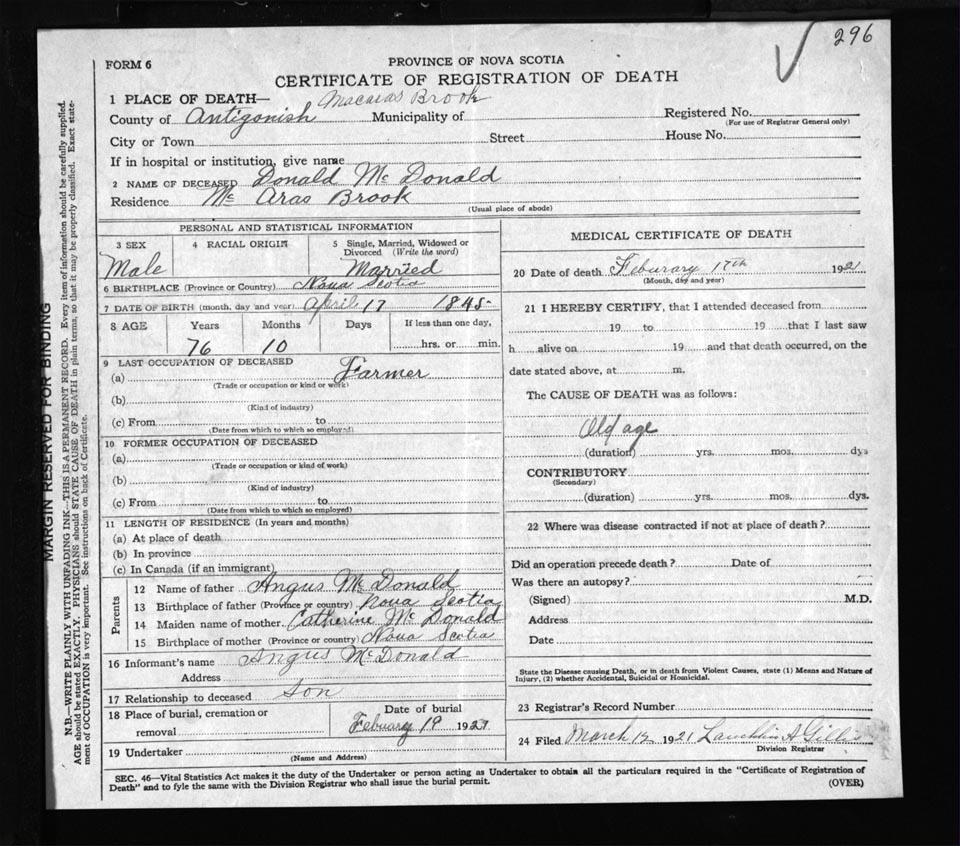 296
FORM 6
PROVINCE OF NOVA SCOTIA
CERTIFICATE OF REGISTRATION OF DEATH
1 PLACE OF DEATH— Macaras Brook
County of Antigonish Municipality of Registered No.
(For use of Registrar General only)
City or Town Street House No.
If in hospital or institution, give name
2 NAME OF DECEASED Donald Mc Donald
Residence Mc Aras Brook
(Usual place of abode)
PERSONAL AND STATISTICAL INFORMATION
3 SEX 4 RACIAL ORIGIN 5 Single, Married, Widowed or
Divorced (Write the word)
Male Married
6 BIRTHPLACE (Province or Country) Nova Scotia
7 DATE OF BIRTH (month, day and year) April 17 1845
8 AGE Years Months Days If less than one day,
76 10 hrs. or min.
9 LAST OCCUPATION OF DECEASED
(a) Farmer
(Trade or occupation or kind or work)
(b)
(Kind of industry)
(c) From to
(Date from which to which so employed)
10 FORMER OCCUPATION OF DECEASED
(a)
(Trade or occupation or kind of work)
(b)
(Kind of industry)
(c) From to
(Date from which to which so employed)
11 LENGTH OF RESIDENCE (In years and months)
(a) At place of death
(b) In province
(c) In Canada (if an immigrant)
Parents
12 Name of father Angus McDonald
13 Birthplace of father (Province or country) Nova Scotia
14 Maiden name of mother Catherine McDonald
15 Birthplace of mother (Province or country) Nova Scotia
16 Informant's name Angus McDonald
Address
17 Relationship to deceased Son
18 Place of burial, cremation or Date of burial
removal Febuary 19 1921
19 Undertaker
(Name and Address)
MEDICAL CERTIFICATE OF DEATH
20 Date of death Feburary 17th 1921
(Month, day and year)
21 I HEREBY CERTIFY, that I attended deceased from
19 to 19 that I last saw
h alive on 19 and that death occurred, on the
date stated above, at m.
The CAUSE OF DEATH was as follows:
Old age
(duration) yrs. mos. dys
CONTRIBUTORY
(Secondary)
(duration) yrs. mos. dys.
22 Where was disease contracted if not at place of death?
Did an operation precede death? Date of
Was there an autopsy?
(Signed) M.D.
Address
Date
State the Disease causing Death, or in death from Violent Causes, state (1) Means and Nature of
Injury, (2) whether Accidental, Suicidal or Homicidal.
23 Registrar's Record Number
24 Filed March 12 1921 Lauchlin A Gillis
Division Registrar
SEC. 46—Vital Statistics Act makes it the duty of the Undertaker or person acting as Undertaker to obtain all the particulars required in the "Certificate of Registration of
Death" and to fyle the same with the Division Registrar who shall issue the burial permit. (OVER)
MARGIN RESERVED FOR BINDING
N.B.—WRITE PLAINLY WITH UNFADING INK—THIS IS A PERMANENT RECORD. Every item of information should be carefully supplied.
AGE should be stated EXACTLY. PHYSICIANS should STATE CAUSE OF DEATH in plain terms, so that it may be properly classified. Exact state-
ment of OCCUPATION is very important. See instructions on back of Certificate.